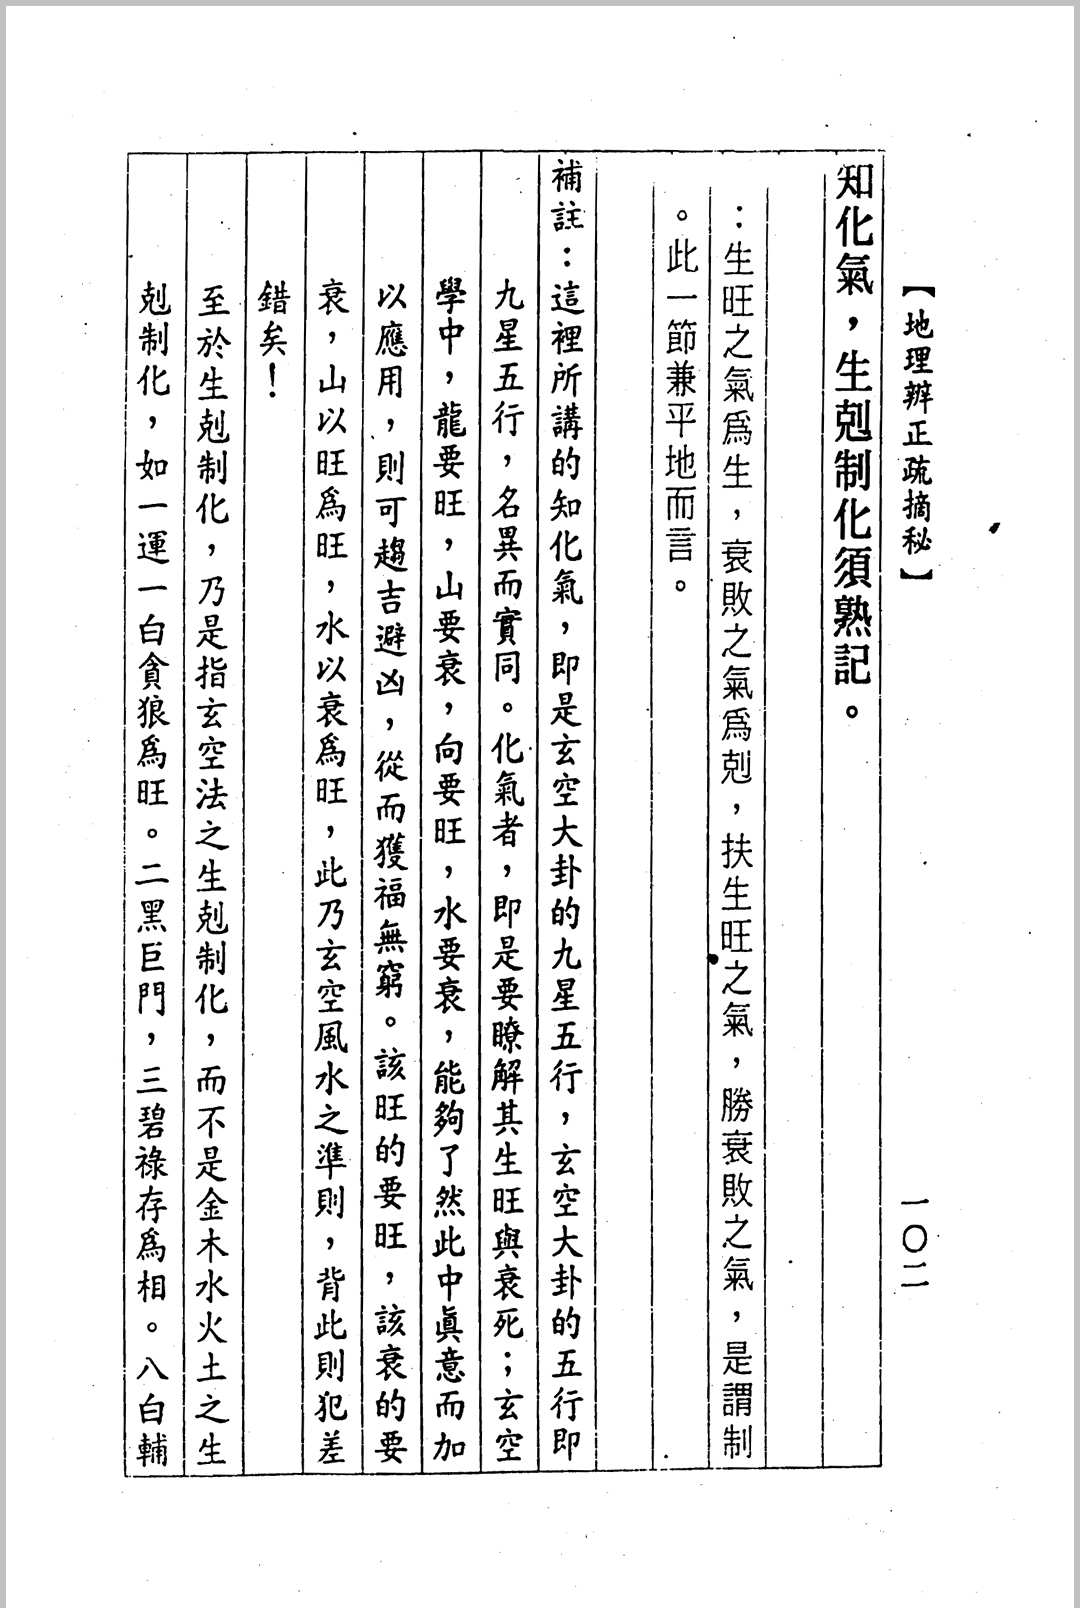 【地理辨正疏摘秘】
一〇二
知化氣，生剋制化須熟記。
：生旺之氣爲生，衰敗之氣爲剋，扶生旺之氣，勝衰敗之氣，是謂制
。此一節兼平地而言。
補註：這裡所講的知化氣，即是玄空大卦的九星五行，玄空大卦的五行即
九星五行，名異而實同。化氣者，即是要瞭解其生旺與衰死；玄空
學中，龍要旺，山要衰，向要旺，水要衰，能夠了然此中眞意而加
以應用，則可趨吉避凶，從而獲福無窮。該旺的要旺，該衰的要
衰，山以旺爲旺，水以衰爲旺，此乃玄空風水之準則，背此則犯差
錯矣！
至於生剋制化，乃是指玄空法之生剋制化，而不是金木水火土之生
剋制化，如一運一白貪狼爲旺。二黑巨門，三碧祿存爲相。八白輔